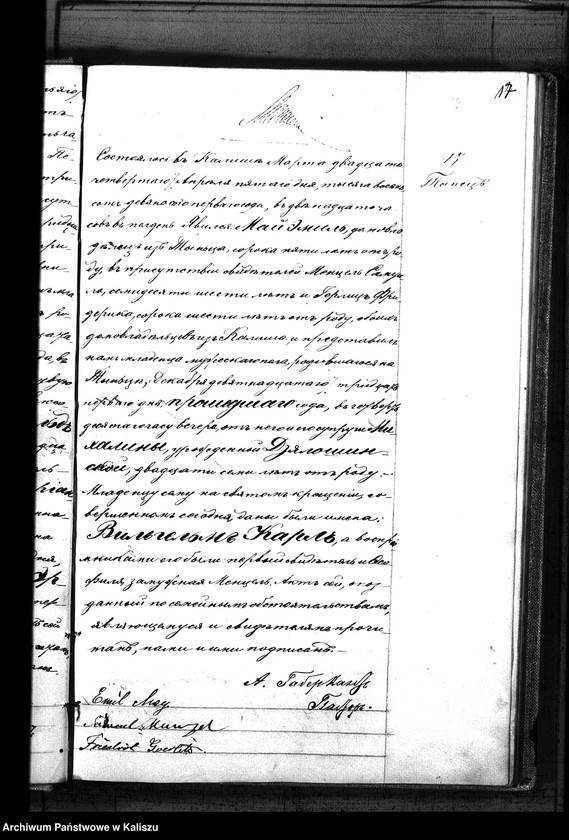 17
17
Тынецъ
Состоялось въ Калишѣ Марта двадцать
четвертаго/Апрѣля пятаго дня, тысяча восемь
сотъ девяносто перваго года, въ двѣнадцать ча
совъ въ полдень. Явился Май Эмиль, домовла
дѣлецъ изъ Тынца, сорока пяти лѣтъ отъ ро
ду, въ присутствіи свидѣтелей Менцель Самуи
ла, семидесяти шести лѣтъ и Герлицъ Фри
дериха, сорока шести лѣтъ отъ роду, обоихъ
домовладѣльцевъ изъ Калиша, и представилъ
намъ младенца мужескаго пола, родившагося въ
Тынцѣ, Декабря девятнадцатаго / тридцать
перваго дня, прошлаго года, въ
десятомъ часу вечера, отъ него и его супруги Ми
халины, урожденной Дзялошин-
ской, двадцати семи лѣтъ отъ роду.-
Младенцу сему на святомъ крещеніи, со
вершенномъ сегодня, даны были имена:
Вильгельмъ Карлъ, а воспрі
емниками его были первый свидѣтель и
замужняя Менцель. Актъ сей, опоз
данный по семейнымъ обстоятельствамъ,
являющемуся и свидѣтелямъ прочи
танъ, нами и ими подписанъ.-
А.
Пасторъ.
Emil May.
Samuel Menzel
Friedrich Goerlitz.
Archiwum Państwowe w Kaliszu